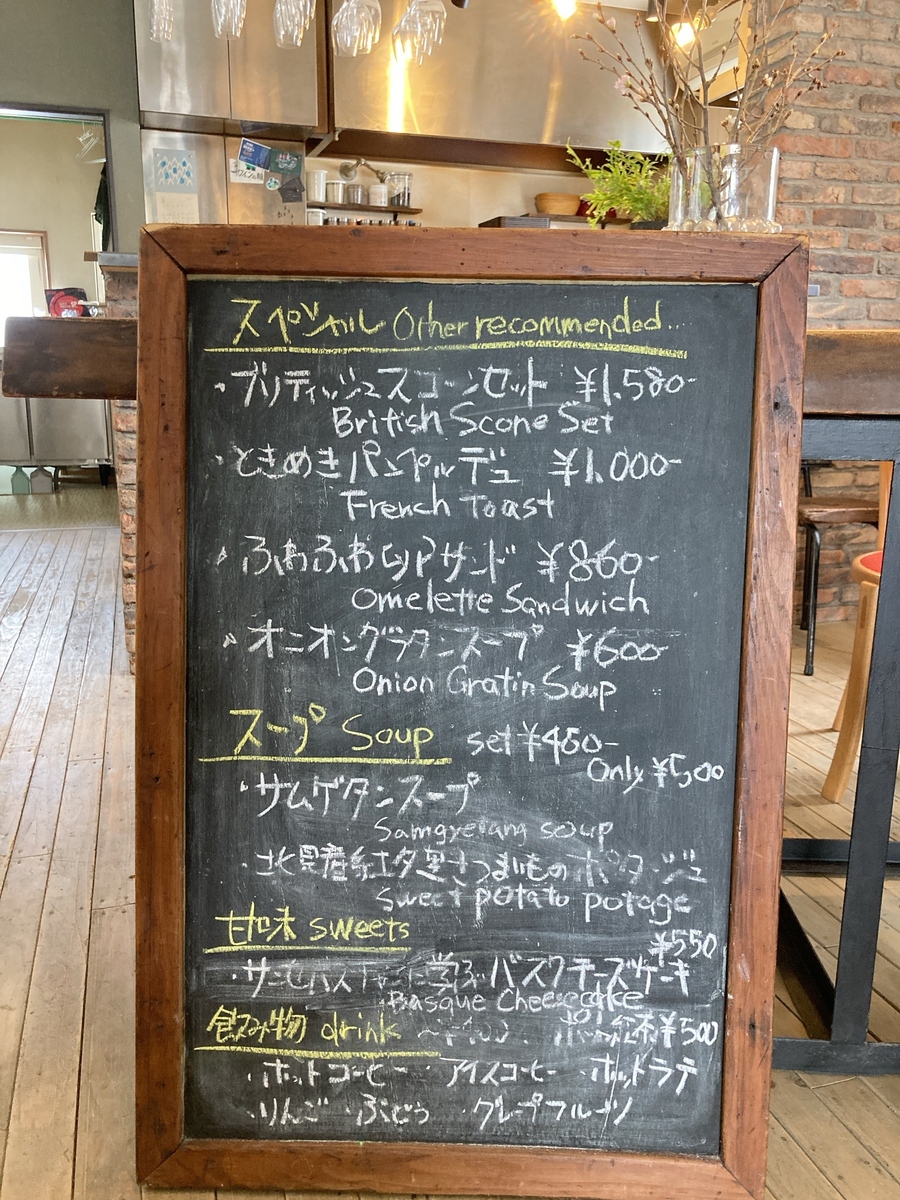 スペシャル Other recommended...
・ブリティッシュスコーンセット ¥1.580-
British Scone Set
・ときめきパンペルデュ ¥1.000-
French Toast
・ふわふわ卵サンド ¥860-
Omelette Sandwich
・オニオングラタンスープ ¥600-
Onion Gratin Soup
スープ Soup set ¥460-
Only ¥500
・サムゲタンスープ
Samgyetang soup
・北見産紅夕里さつまいものポタージュ
Sweet potato potage
甘味 sweets ¥550
に学ぶバスクチーズケーキ
Basque Cheesecake
飲み物 drink ¥500
・ホットコーヒー ・アイスコーヒー ・ホットラテ
・りんご ・ぶどう ・グレープフルーツ